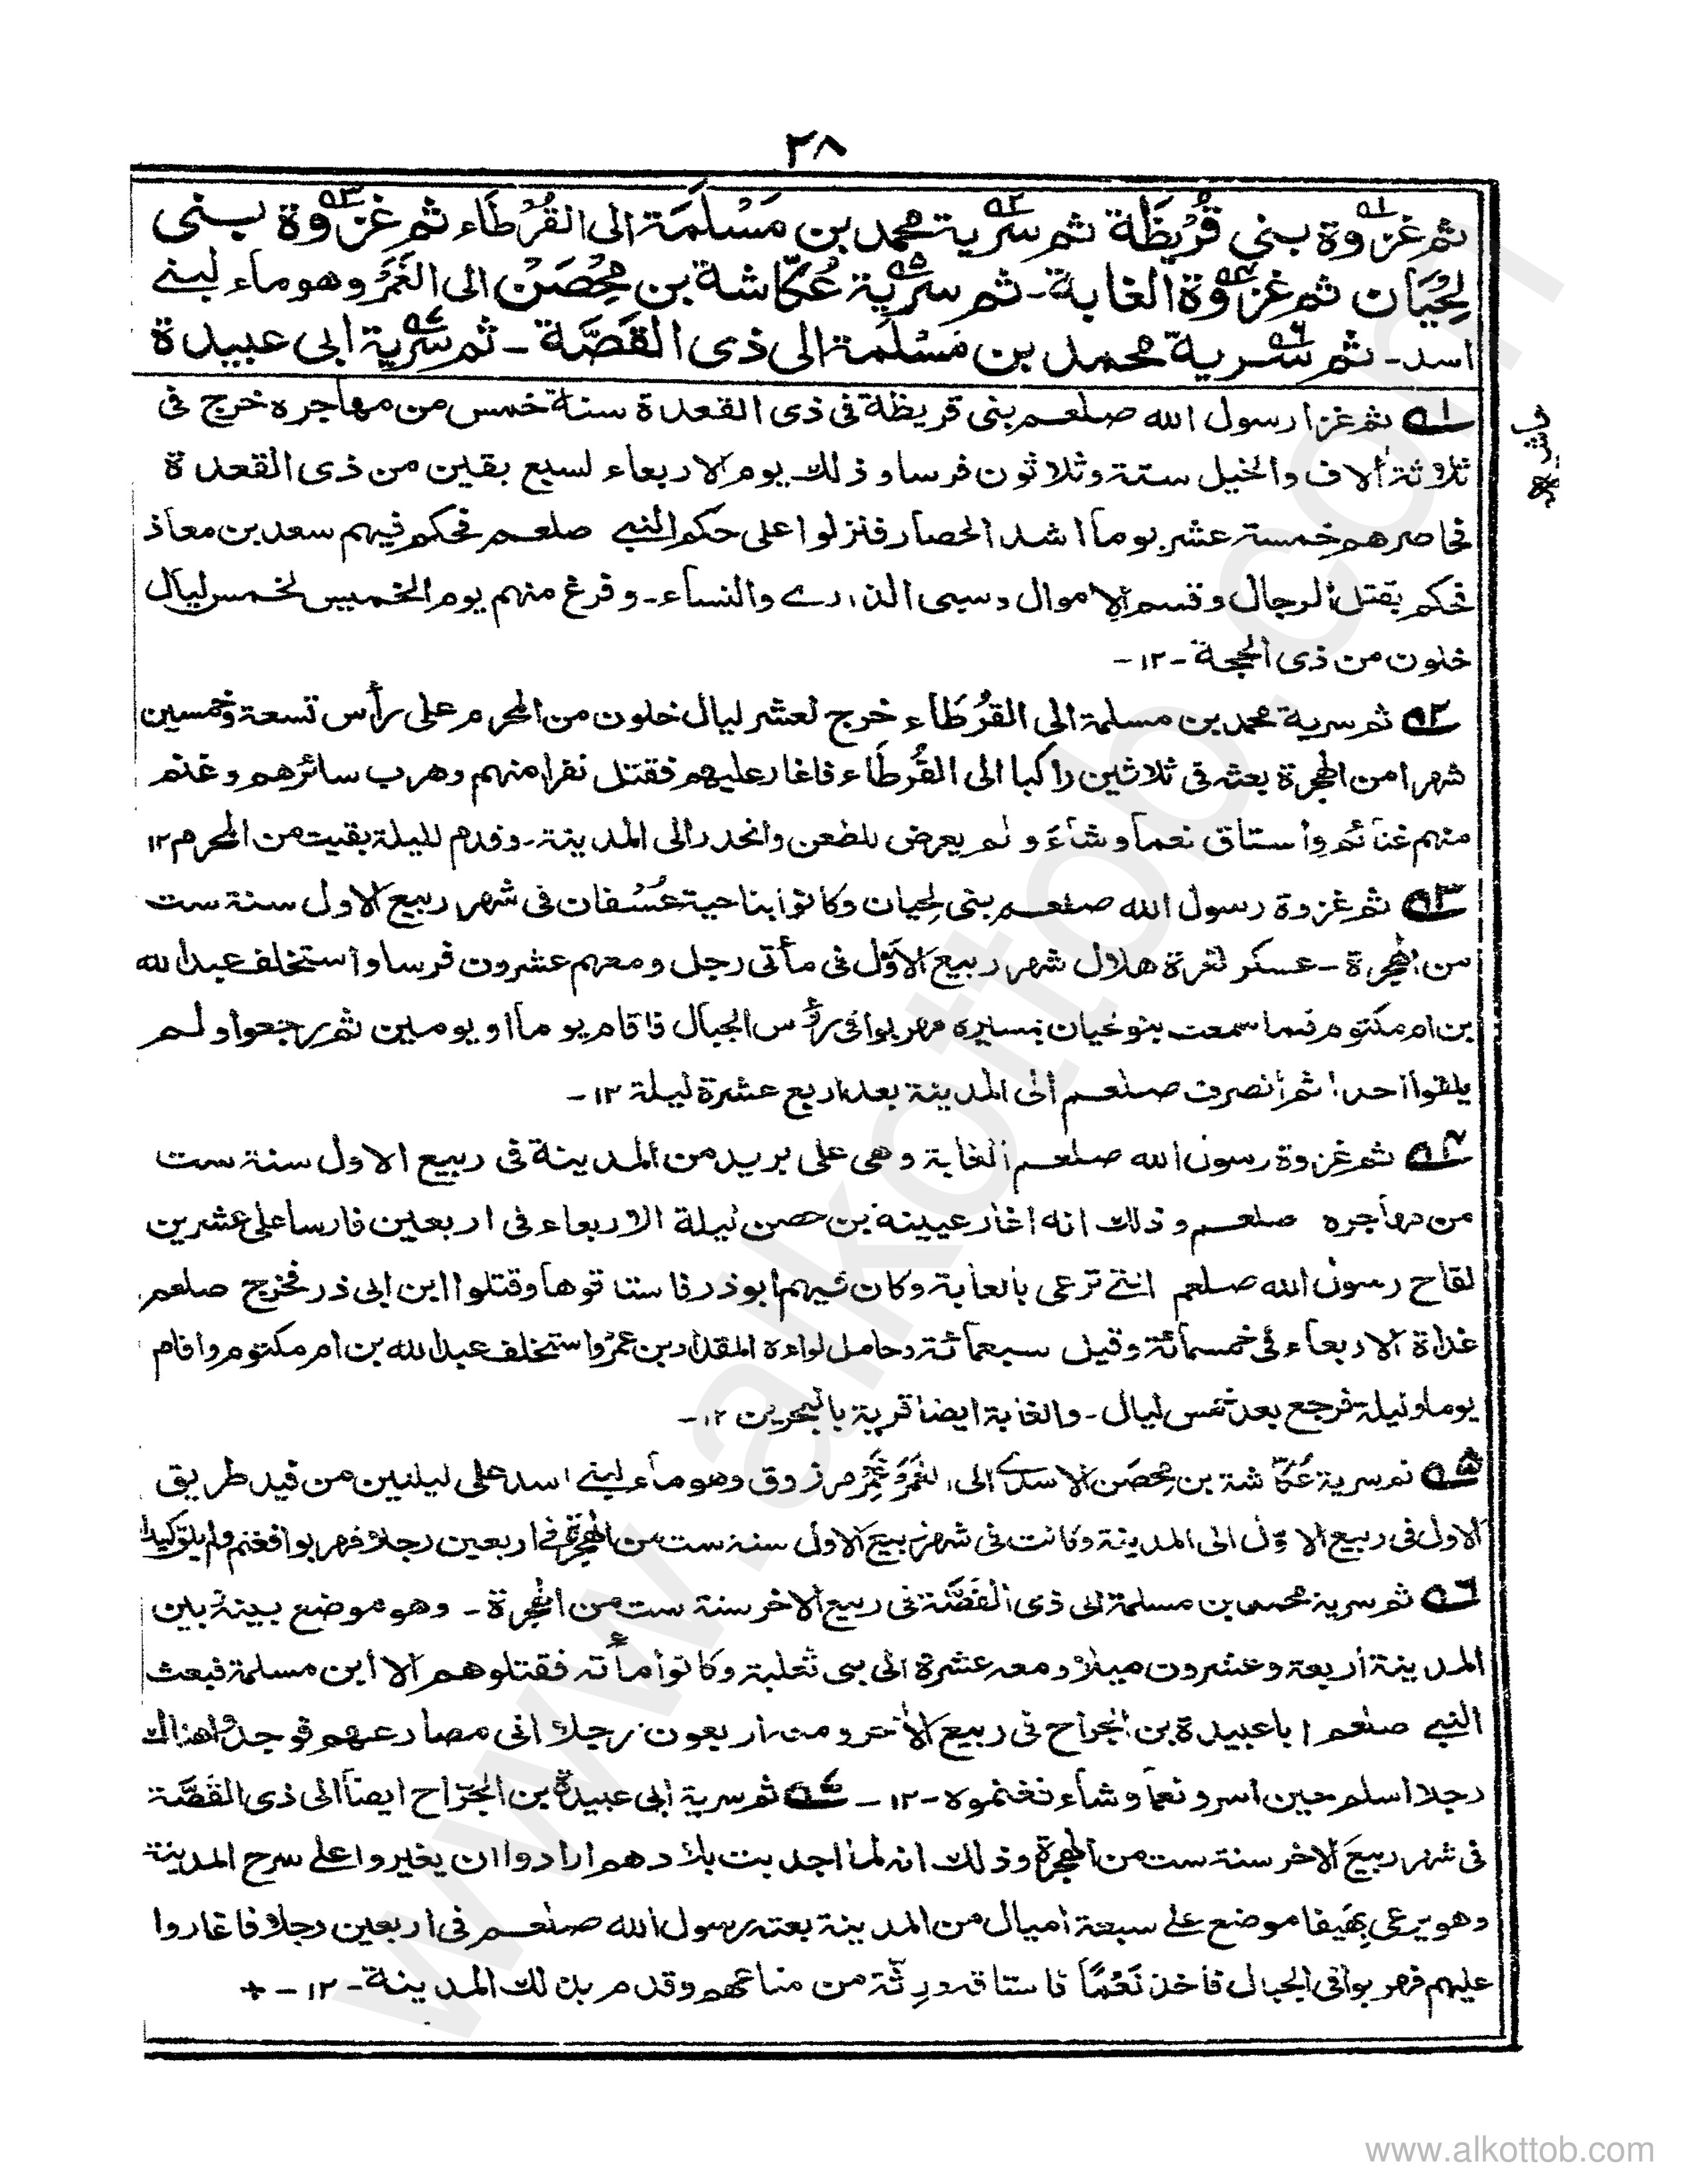 ٣٨
ثم غزوة بنى قُرَيظَة ثم سرية محمد بن مَسْلَمَة الى القُرْطَاء ثم غزوة بنى
لِحْيَان ثم غزوة الغابة - ثم سرية عُكّاشة بن مِحْصَنْ الى الغَمْرَ وهو ماء لبنے
اسد - ثم سرية محمد بن مَسْلَمة الى ذى القَصَّة - ثم سرية ابى عبيدة
١ ثم غزا رسول الله صلعم بنى قريظة فى ذى القعدة سنة خمس من مهاجره خرج فى
ثلاثة ألاف والخيل ستة وثلاثون فرسا وذلك يوم الاربعاء لسبع بقين من ذى القعدة
فحاصرهم خمسة عشر يوماً اشد الحصار فنزلوا على حكم النبے صلعم فحكم فيهم سعد بن معاذ
فحكم بقتل الرجال وقسم الاموال وسبى الذرارے والنساء - وفرغ منهم يوم الخميس لخمس ليال
خلون من ذى الحجة - ١٢ -
٢ ثم سرية محمد بن مسلمة الى القُرَطَاء خرج لعشر ليال خلون من المحرم على رأس تسعة وخمسين
شهرا من الهجرة بعثه فى ثلاثين راكبا الى القُرطَاء فاغار عليهم فقتل نفرا منهم وهرب سائرهم وغنم
منهم غنائم وأستاق نعماً وشاءَ ولم يعرض للطعن وانحدر الى المدينة - وقدم لليلة بقيت من المحرم ١٢
٣ ثم غزوة رسول الله صلعم بنى لحيان وكانوا بناحية عُسْفان فى شهر ربيع الاول سنة ست
من الهجرة - عسكر لغرة هلال شهر ربيع الاوّل فى مأتى رجل ومعهم عشرون فرسا واستخلف عبد الله
بن ام مكتوم فلما سمعت بنو لحيان بمسيره فهربوا فى رؤس الجبال فاقام يوماً او يومين ثم رجعوا ولم
يلقوا احدا ثم أنصرف صلعم الى المدينة بعد اربع عشرة ليلة ١٢ -
٤ ثم غزوة رسول الله صلعم الغابة وهى على بريد من المدينة فى ربيع الاول سنة ست
من مهاجره صلعم وذلك انه اغار عيينة بن حصن ليلة الاربعاء فى اربعين فارسا على عشرين
لقاح رسول الله صلعم التے ترعى بالغابة وكان فيهم ابو ذر فاستاقوها وقتلوا ابن ابى ذر فخرج صلعم
غداة الاربعاء فى خمسمائة وقيل سبعمائة وحامل لواءه المقداد بن عمرو واستخلف عبد الله بن ام مكتوم واقام
يوما وليلة فرجع بعد خمس ليال - والغابة ايضا قرية بالبحرين ١٢ -
٥ ثم سرية عُكّاشة بن مِحصَن الاسدے الى الغمرَ غَمْرِ مرزوق وهو ماء لبنے اسد على ليلتين من فيد طريق
الاول فى ربيع الاوّل الى المدينة وكانت فى شهر ربيع الاول سنة ست من الهجرة فے اربعين رجلا فهربوا فغنم ولم يلق كيدا
٦ ثم سرية محمد بن مسلمة الى ذى القَصَّة فى ربيع الاخر سنة ست من الهجرة - وهو موضع بينه بين
المدينة أربعة وعشرون ميلا ومعه عشرة الى بنى ثعلبة وكانوا مأته فقتلوهم الا أبن مسلمة فبعث
النبے صلعم ابا عبيدة بن الجراح فى ربيع الأخر ومعه أربعون رجلا الى مصارعهم فوجدوا هناك
رجلا اسلم حين أسر ونعماً وشاء فغنموه - ١٢ - ٧ ثم سرية ابى عبيدة بن الجرّاح ايضاً الى ذى القَصَّة
فى شهر ربيع الاخر سنة ست من الهجرة وذلك انه لما اجدبت بلادهم ارادوا ان يغيروا علے سرح المدينة
وهو يرعى بهَيفا موضع علے سبعة اميال من المدينة بعثه رسول الله صلعم فى اربعين رجلا فاغاروا
عليهم فهربوا فى الجبال فاخذ نَعَمًا فاستاقه ورِثّة من متاعهم وقدم بذلك المدينة - ١٢ - +
www.alkottob.com
www.alkottob.com